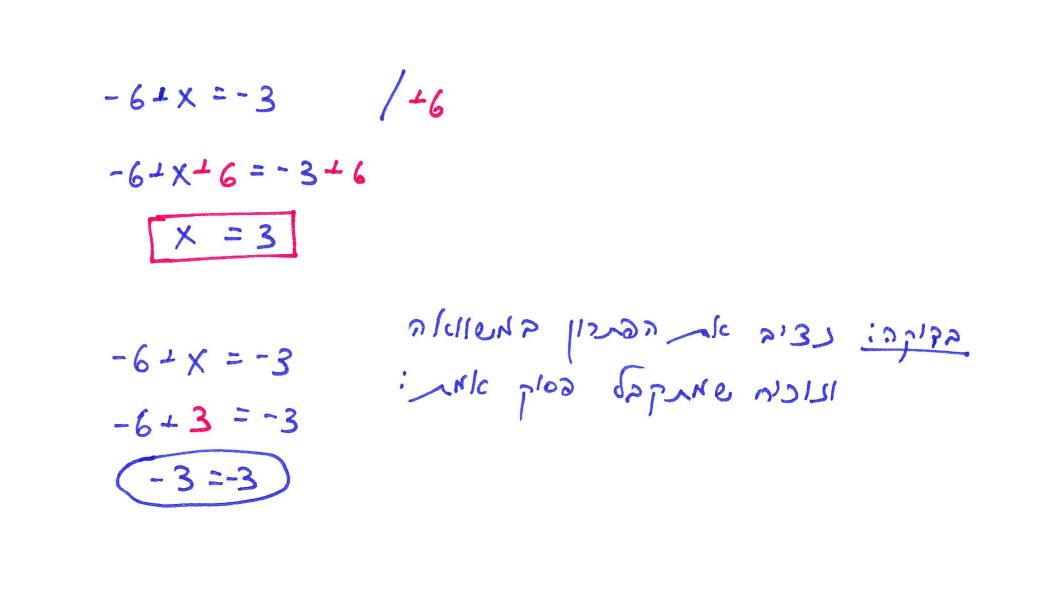 -6+x=-3 /+6
-6+x+6=-3+6
x = 3
בדוקה: נציב את הפתרון במשוואה
ונוכיח שמתקבל פסוק אמת:
-6+x=-3
-6+3=-3
-3=-3